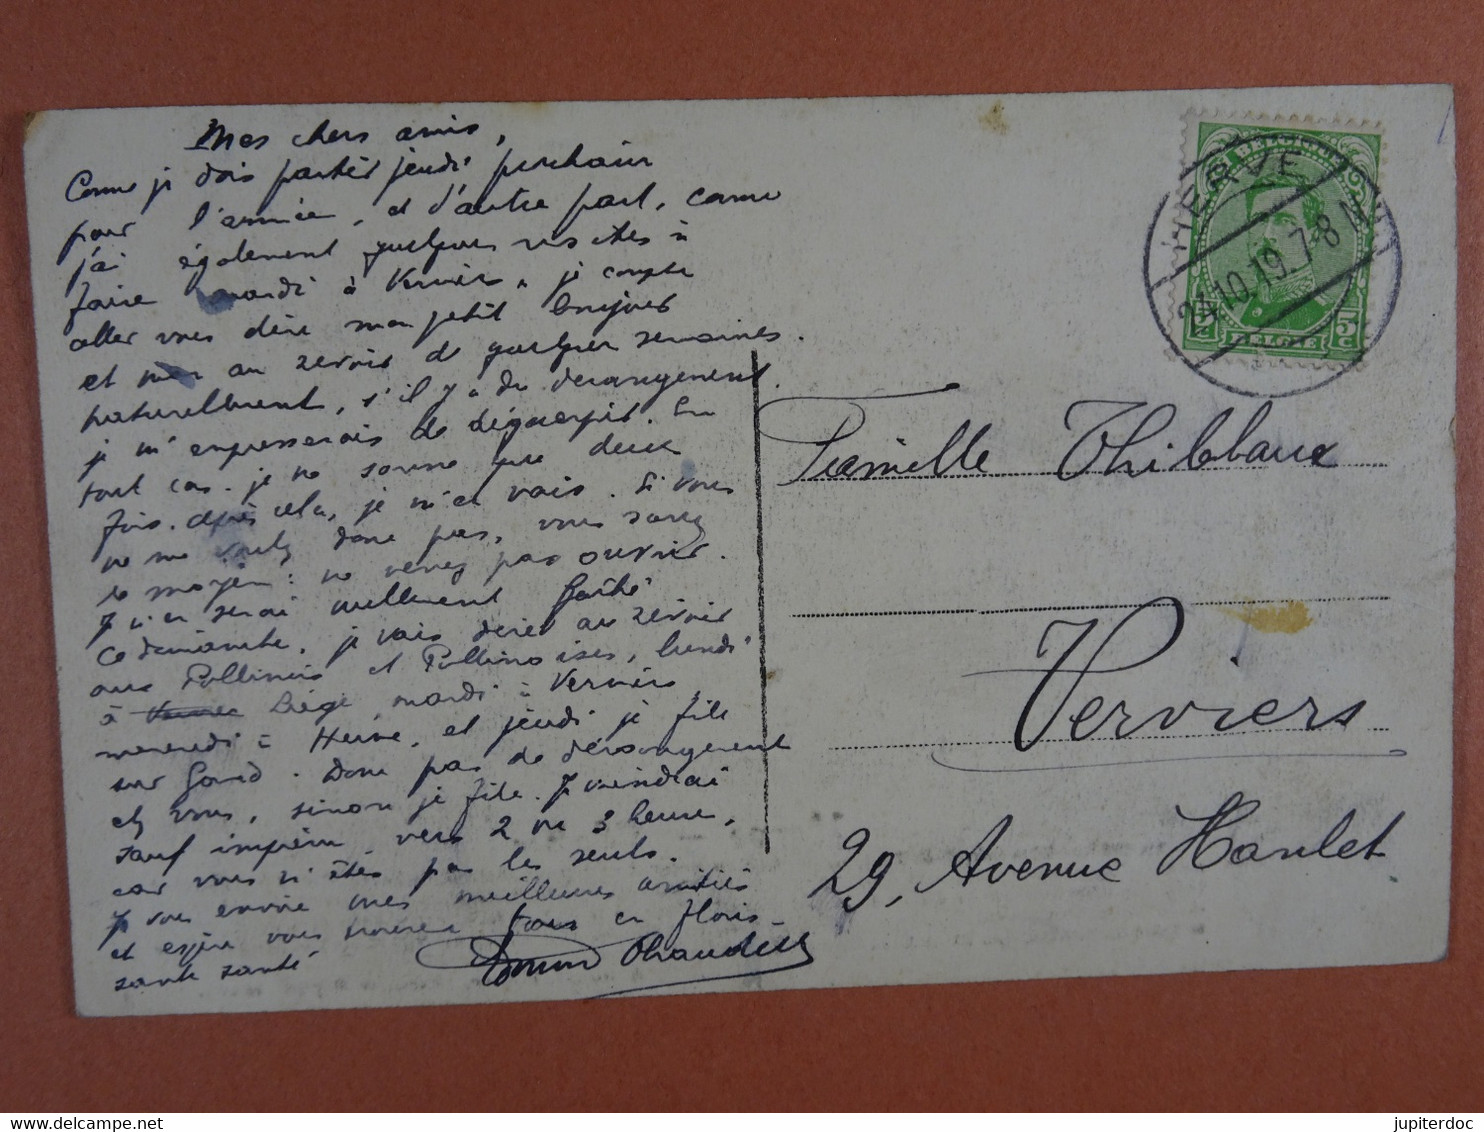 Mes chers amis,
Comme je dois partir jeudi prochain
pour l'armée, et d'autre part, comme
j'ai également quelques visites à
faire mardi à Verviers, je compte
aller vous dire mon petit bonjour
et mon au revoir de quelques semaines.
Naturellement, s'il y a du derangement,
je m'empresserais de déguerpir. En
tout cas, je ne sonne que deux
fois. après cela, je m'en vais. Si vous
ne me voulez donc pas, vous savez
le moyen : ne venez pas ouvrir.
J n'en serai nullement faché
Ce dimanche, je vais dire au revoir
aux Pollinois et Pollinoises, lundi
à Liége, mardi à Verviers,
mercredi à Herve, et jeudi je file
sur Gand. Donc pas de dérangement
chez vous, sinon je file. J viendrai
sauf imprévu vers 2 ou 3 heures,
car vous n'êtes pas les seuls.
J vous envoie mes meilleures amitiés
et espère vous trouver tous en floris-
sante santé
Famille Thiblaux
Verviers
29, Avenue Hanlet
HERVE
24.10.19. 7-8 M
BELGIQUE
BELGIE
5 c
jupiterdoc